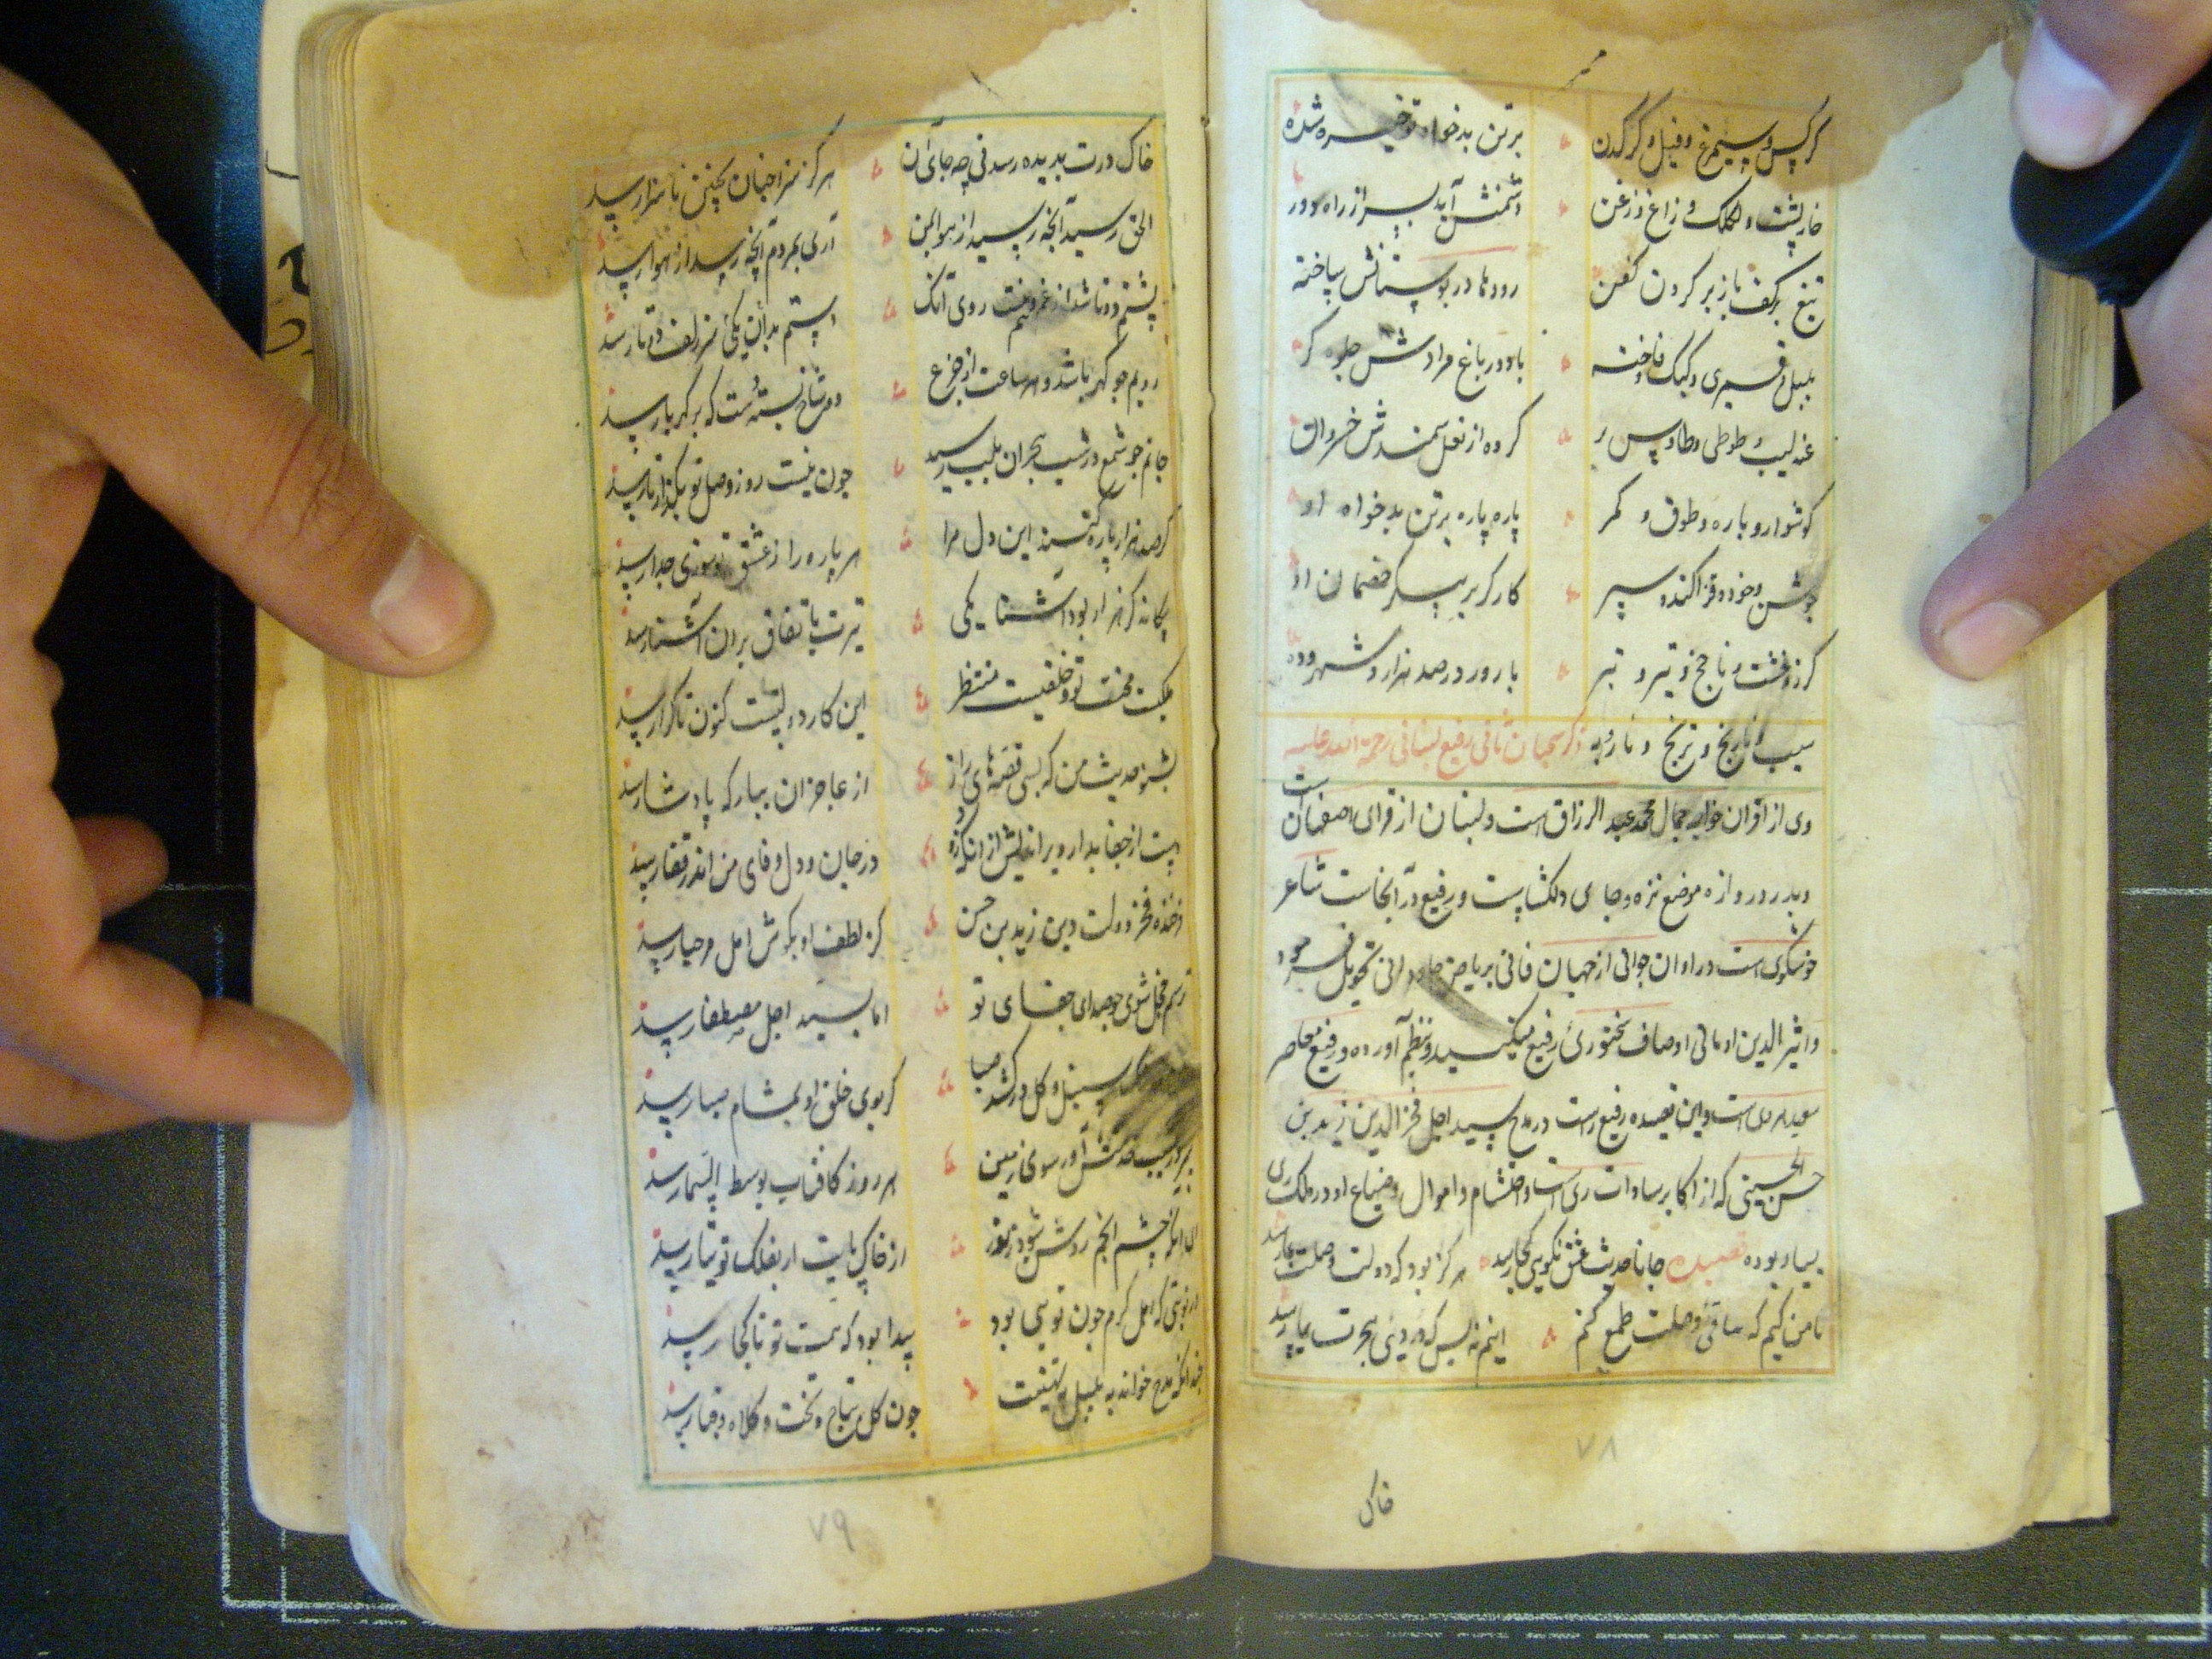 کرکس و سیمرغ و فیل و کرکدن برتن بدخواه تو خیره شده
خارپشت و لکلک و زاغ و زغن دشمنش آید بسر از راه دور
تیغ برکف باز بر کردن کفن رودها در بوستانش ساخته
بلبل و قمری و کبک و فاخته باد در باغ مرادش جلوه کر
عندلیب و طوطی و طاوس نر کرده از نعل سمندش خسروان
کوشوار و یاره و طوق و کمر پاره پاره برتن بدخواه او
جوشن و خود و قزاکند و سپر کارکر بر پیکر خصمان او
کرز و خشت و ناجخ و تیر و تبر بارور در صد هزار و شهر و ده
سیب و نارنج و ترنج و نار و به ذکر سحبان ثانی رفیع لنبانی رحمة الله علیه
وی از اقران خواجه جمال محمد عبد الرزاق است و لنبان از قرای اصفهان است
و بدر دروازه موضع نزه و جای دلکشایست و رفیع در آنجاست شاعر
خوشکوی است در اوان جوانی از جهان فانی بریاض جاودانی تحویل فرمود
و اثیر الدین اومانی اوصاف سخنوری رفیع میکند و بنظم آورده و رفیع معاصر
سعید هروی است و این قصیده رفیع راست در مدح سید اجل فخر الدین زید بن
حسن الحسینی که از اکابر سادات ری است و احتشام و اموال و ضیاع او در ملک ری
بسیار بوده قصیده جانا حدیث عشق نکویی کجا رسد هرکز بود که دولت وصلت بما رسد
تا من کیم که ساقی وصلت طمع کنم اینم نه بس که دردی هجرت بما رسد
۷۸
خاک
خاک درت بدیده رسد فی چه جای آن هرکز سزا جنان بچنین ناسزا رسد
الحق رسید آنچه رسید از هوا بمن آری بمردم آنچه رسد از هوا رسد
پشتم دوتا شد از غم و نیست روی آنک دستم بدان یکی سر زلف دوتا رسد
رویم چو کهربا شد و هر ساعت از جزع
جانم چو شمع در شب هجران بلب رسید چون نیست روز وصل تو بکذار تا رسد
کر صد هزار پاره کنند این دل مرا هر پاره را ز عشق تو سوزی جدا رسد
بیکانه کر هزار بود آشنا یکی تیرت باتفاق بران آشنا رسد
یکیست محنت تو و خلقیست منتظر این کارد، کنون تا کرا رسد
بشنو حدیث من که بسی قصه های راز از عاجزان ببارکه پادشا رسد
دست از جفا بدار و براندیش از آنکه در جان و دل وفای من اندر قفا رسد
فرخنده فخر دولت و دین زید بن حسن کز لطف او بکوش امل مرحبا رسد
ترسم خجل شوی چو صدای جفای تو اما بسید اجل مصطفا رسد
سنبل و کل درکشد صبا کر بوی خلق او بمشام صبا رسد
آورد سوی زمین هر روز کافتاب بوسط السما رسد
ای آنکه چشم انجم روشن شود ز نور از خاک پایت ار بفلک توتیا رسد
در نوبتی که اهل کرم چون تویی بود پیدا بود که همت تو تا کجا رسد
مدح خواند به بلبل بتهنیت چون کل بتاج و تخت و کلاه و قبا رسد
۷۹